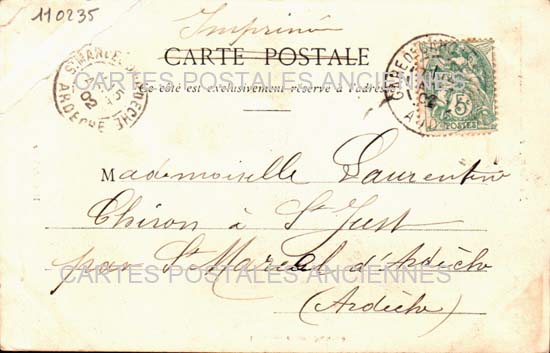 110235
Imprimé
CARTE POSTALE
Ce côté est exclusivement réservé à l'adresse
ST MARCEL-D'ARDÈCHE
02
ARDÈCHE
02
5
POSTES
CARTES POSTALES ANCIENNES
Mademoiselle Laurentine
Chiron à St Just
par St Marcel d'Ardèche
CARTES POSTALES ANCIENNES
(Ardèche)